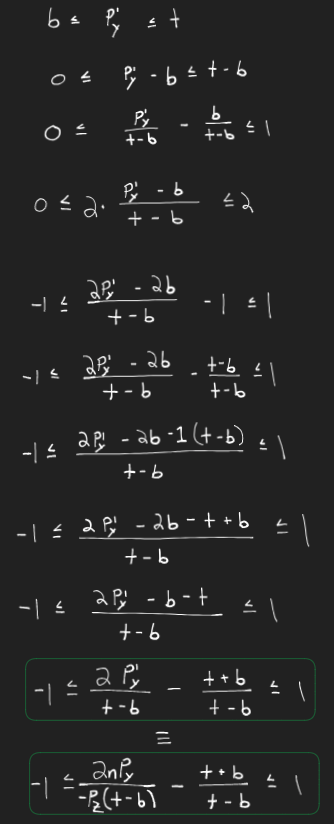 b ≤ P'y ≤ t
0 ≤ P'y - b ≤ t - b
0 ≤ P'y/(t-b) - b/(t-b) ≤ 1
0 ≤ 2 · (P'y - b)/(t - b) ≤ 2
-1 ≤ (2P'y - 2b)/(t - b) - 1 ≤ 1
-1 ≤ (2P'y - 2b)/(t - b) - (t-b)/(t-b) ≤ 1
-1 ≤ (2P'y - 2b - 1(t-b))/(t-b) ≤ 1
-1 ≤ (2P'y - 2b - t + b)/(t-b) ≤ 1
-1 ≤ (2P'y - b - t)/(t-b) ≤ 1
-1 ≤ 2P'y/(t-b) - (t+b)/(t-b) ≤ 1
≡
-1 ≤ 2nPy/(-Pz(t-b)) - (t+b)/(t-b) ≤ 1